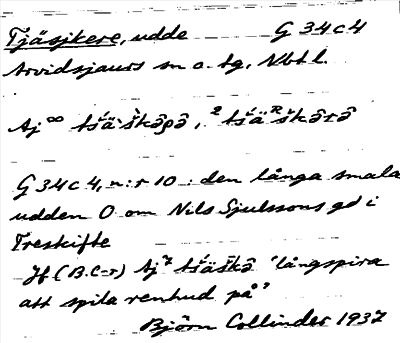 Tjäsjkere, udde G 34 c 4
Arvidsjaurs sn o. tg, Nbt l.
Aj ∞ tśä·škəpə, ² tśäᴿškərə
G 34 c 4, n:r 10 : den långa smala
udden O om Nils Sjulssons gd i
Treskifte
Jf (B.C-r) Aj⁷ tśäškə 'långspira
att spila renhud på'
Björn Collinder 1937